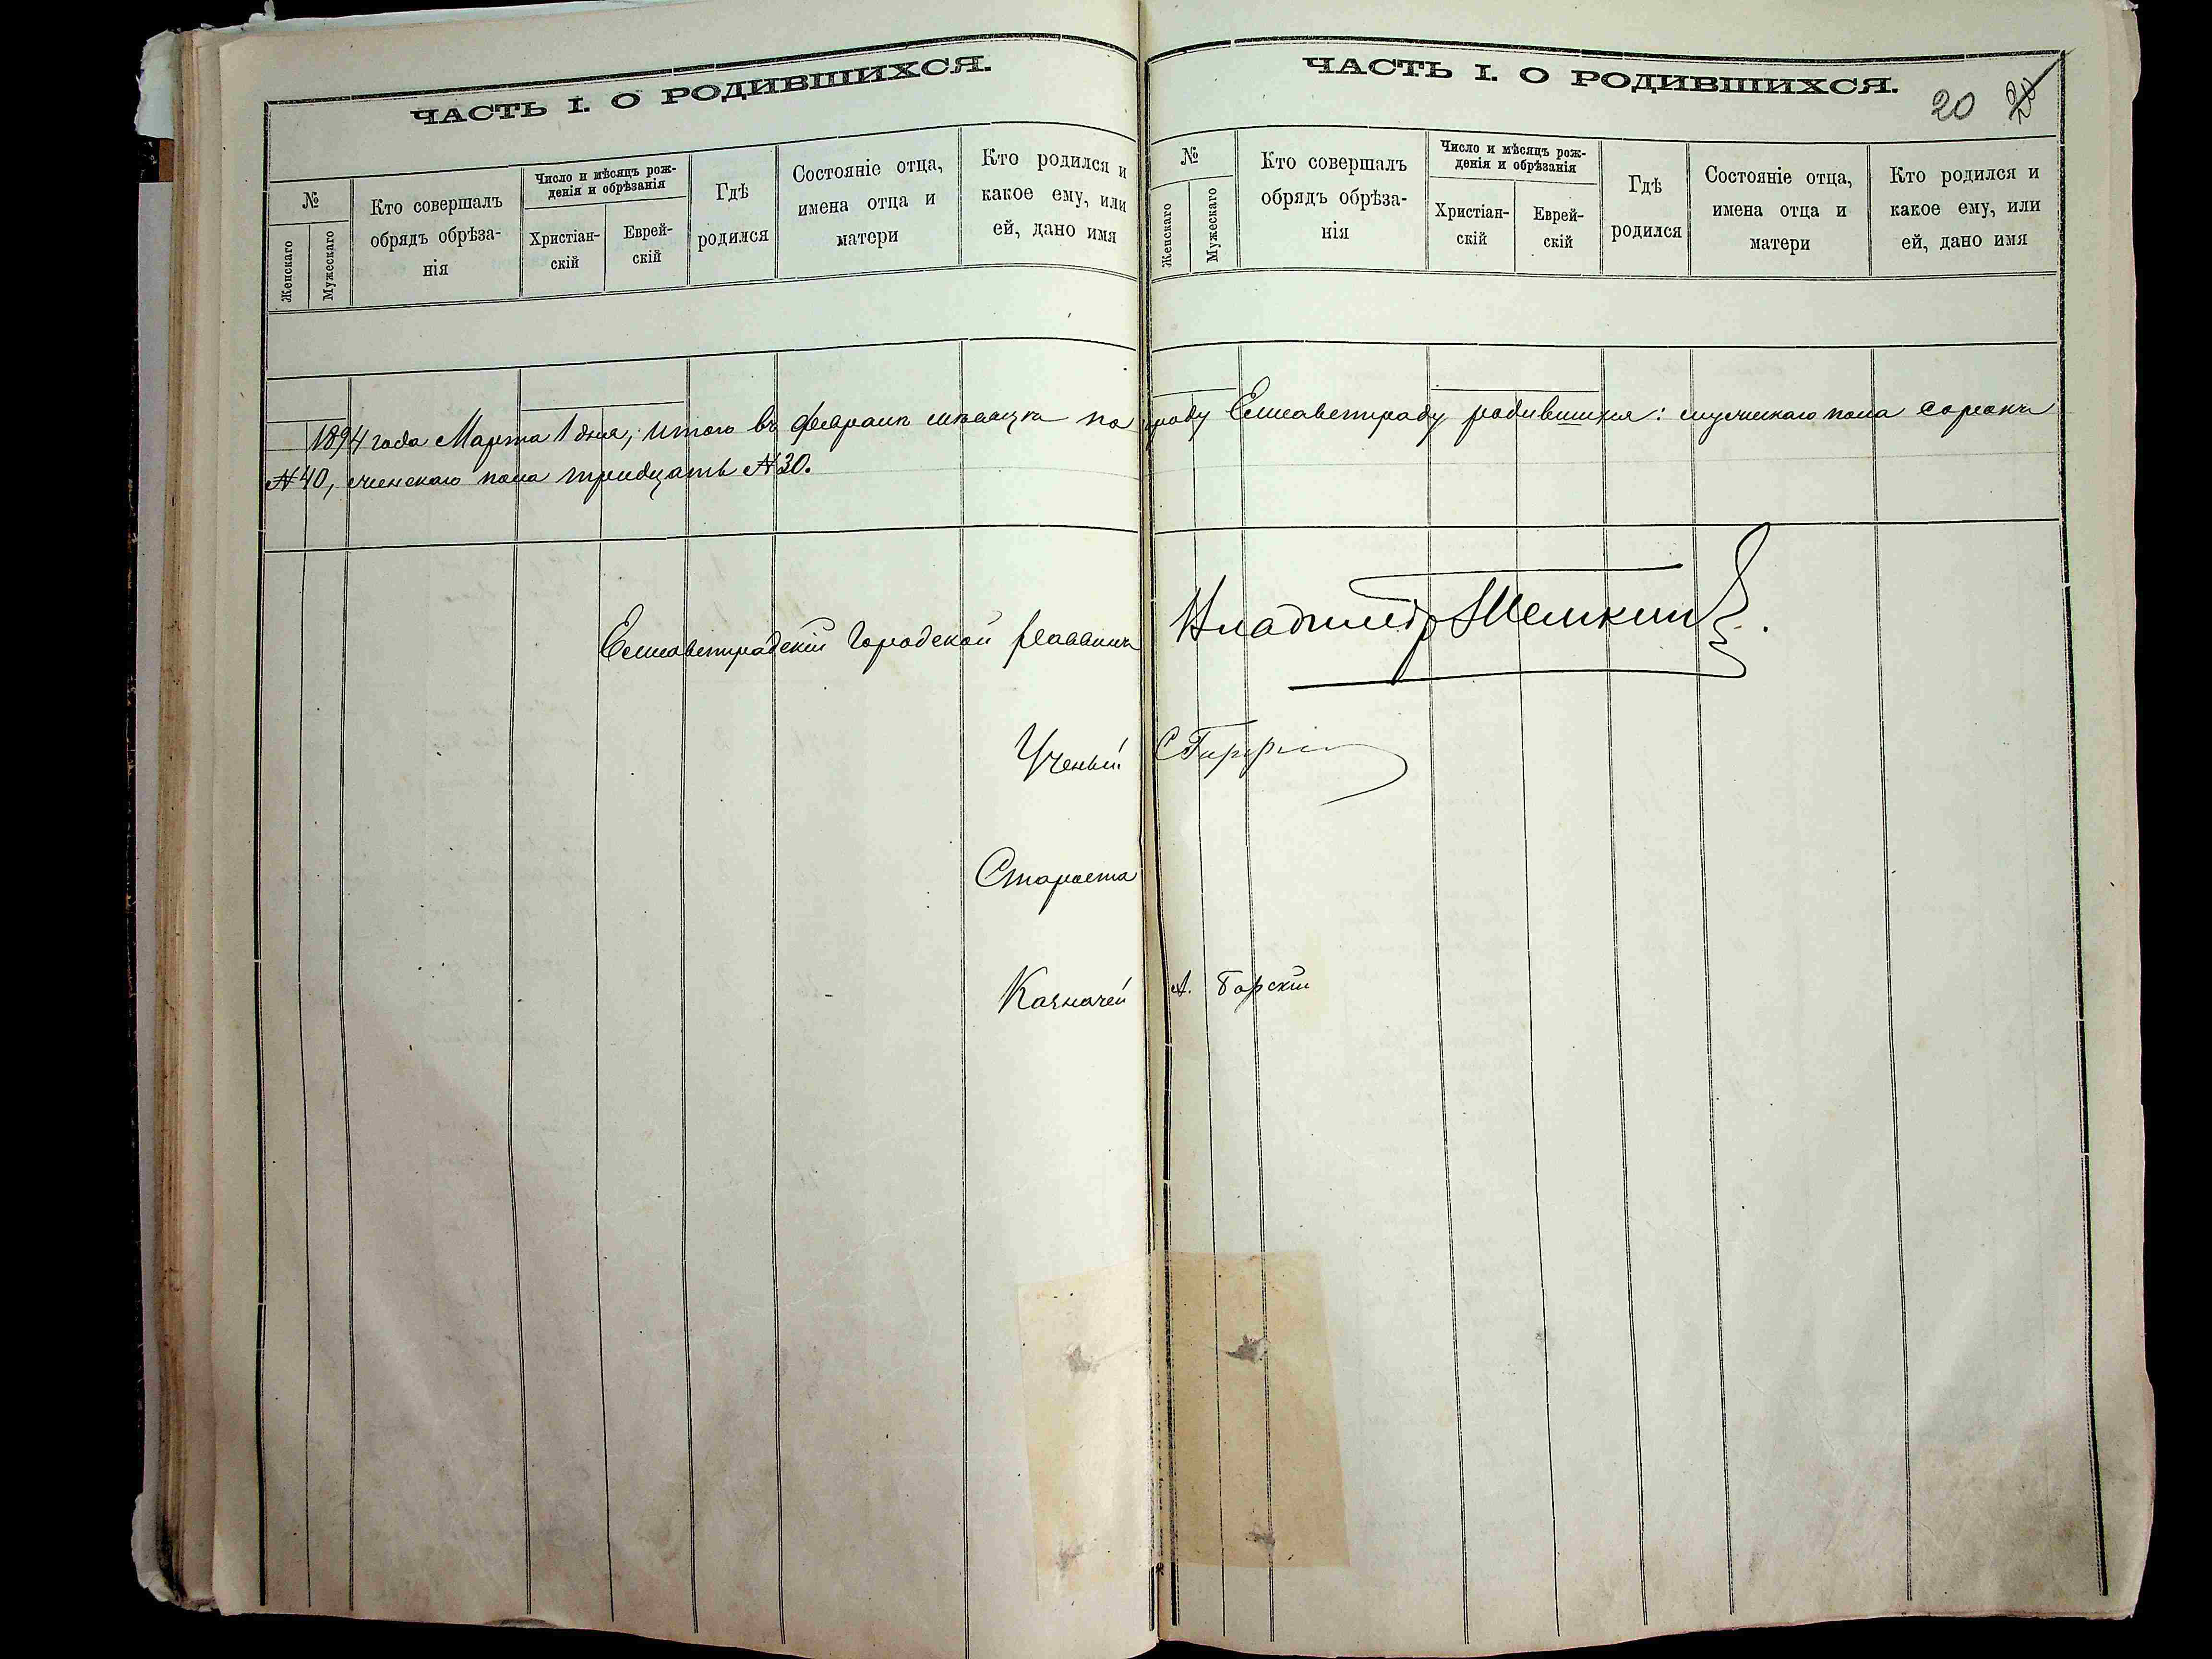 ЧАСТЬ I. О РОДИВШИХСЯ.
№
Женскаго
Мужескаго
Кто совершалъ
обрядъ обрѣза-
нія
Число и мѣсяцъ рож-
денія и обрѣзанія
Христіан-
скій
Еврей-
скій
Гдѣ
родился
Состояніе отца,
имена отца и
матери
Кто родился и
какое ему, или
ей, дано имя
ЧАСТЬ I. О РОДИВШИХСЯ.
20 20
№
Женскаго
Мужескаго
Кто совершалъ
обрядъ обрѣза-
нія
Число и мѣсяцъ рож-
денія и обрѣзанія
Христіан-
скій
Еврей-
скій
Гдѣ
родился
Состояніе отца,
имена отца и
матери
Кто родился и
какое ему, или
ей, дано имя
1894 года Марта 1 дня, итого въ февралѣ мѣсяцѣ по городу Елисаветграду родившихся: мужскаго пола сорокъ
№ 40, женскаго пола тридцать № 30.
Елисаветградскій Городской Раввинъ Владимір Темкин
Ученый
Староста
Казначей А. Барскій